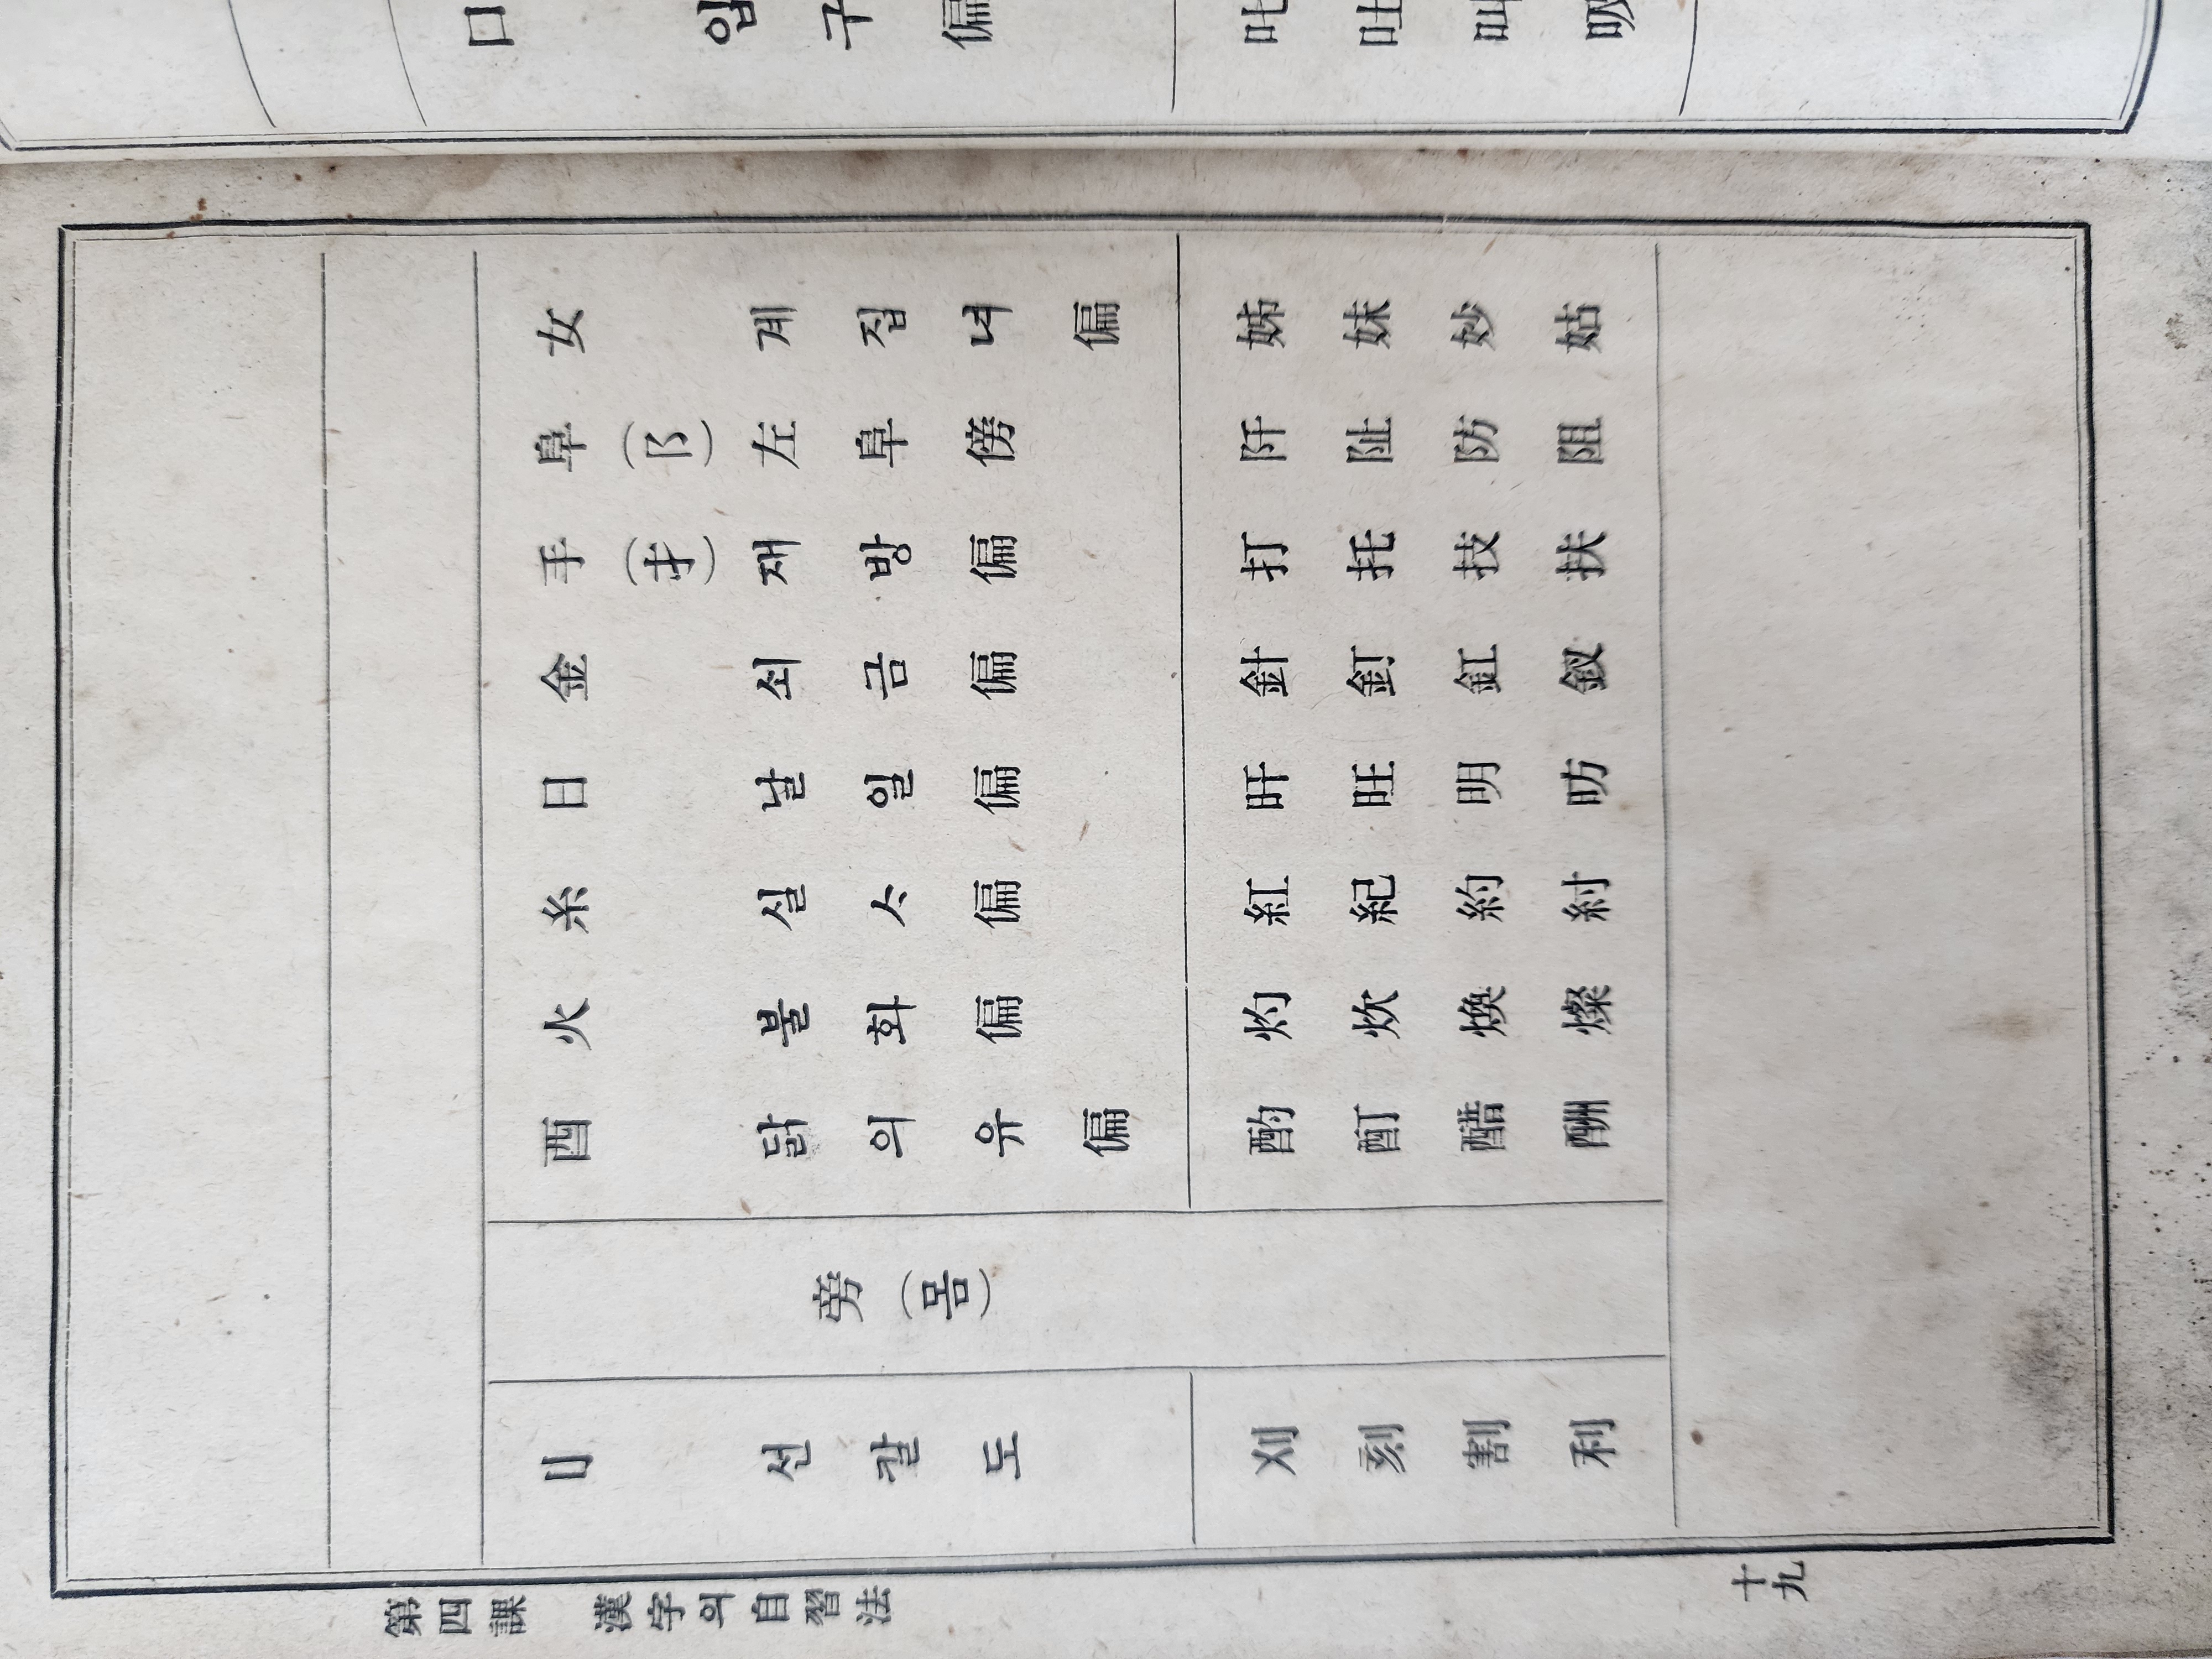 口 입구偏 叱吐叫吸
女 계집녀偏 姊妹妙姑
阜(阝)左阜傍 阡阯防阻
手(扌)재방偏 打托技扶
金 쇠금偏 針釘釭釵
日 날일偏 旰旺明昉
糸 실ᄉᆞ偏 紅紀約紂
火 불화偏 灼炊煥燦
酉 닭의유偏 酌酊醋酬
旁(몸)
刂 선칼도 刈刻割利
第四課 漢字의自習法
十九